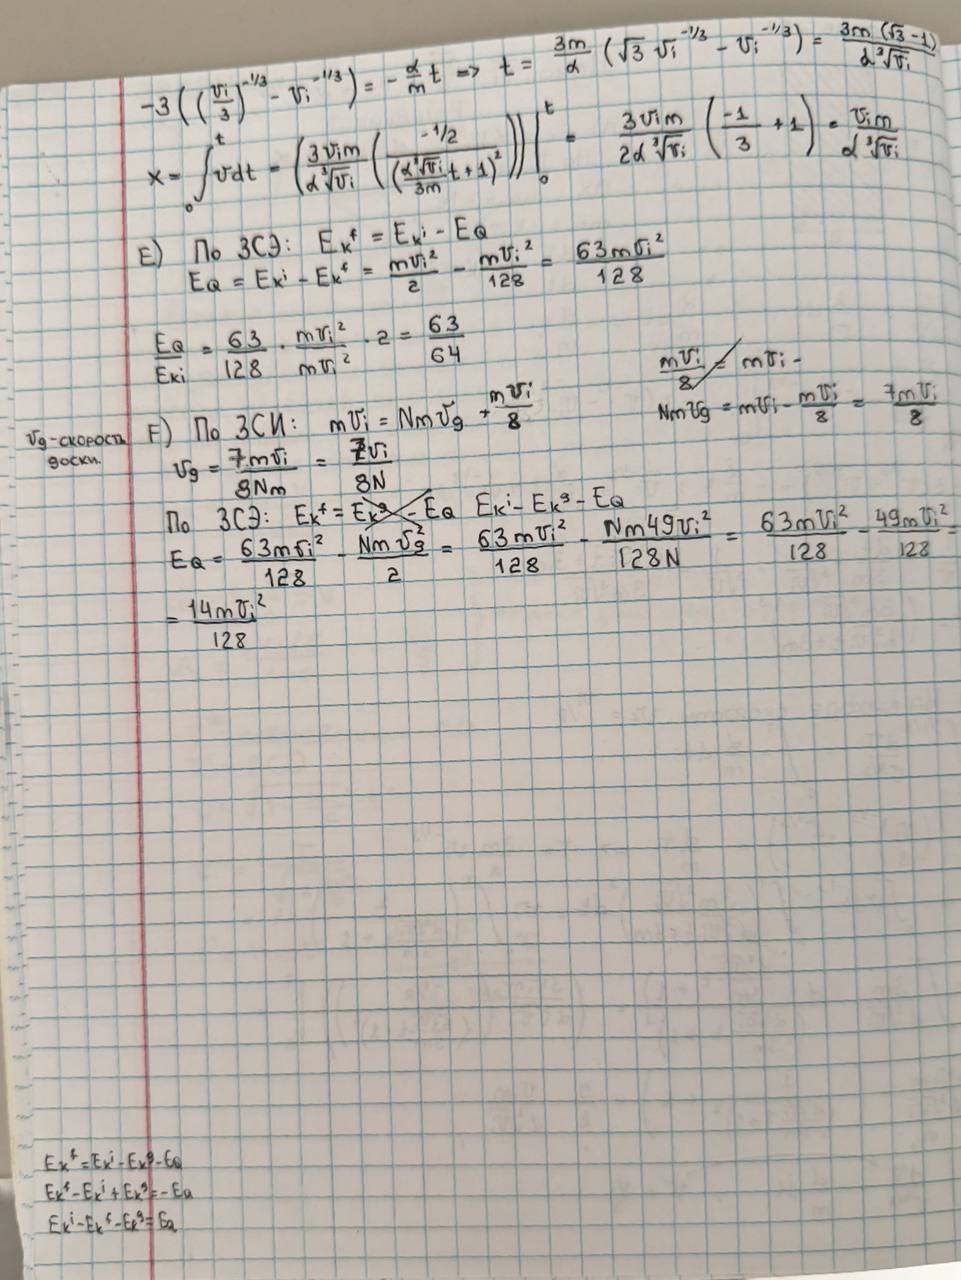 -3 ((vi/3)^-1/3 - vi^-1/3) = - α/m t => t = 3m/α (√3 vi^-1/3 - vi^-1/3) = 3m (√3 - 1)/α ³√vi
x = ∫₀ᵗ vdt = (3vim/α³√vi (-1/2/(α³√vi/3m t + 1)²))|₀ᵗ = 3vim/2α³√vi (-1/3 + 1) = vim/α³√vi
E) По ЗСЭ: Eкᶠ = Eкⁱ - EQ
EQ = Eкⁱ - Eкᶠ = mvi²/2 - mvi²/128 = 63mvi²/128
EQ/Eкi = 63/128 · mvi²/mvi² · 2 = 63/64
mvi/8 = mvi -
NmVg = mvi - mvi/8 = 7mvi/8
Vg-скорость доски.
F) По ЗСИ: mvi = NmVg + mvi/8
Vg = 7mvi/8Nm = 7vi/8N
По ЗСЭ: Eкᶠ = Eкᵍ - EQ Eкⁱ - Eкᵍ - EQ
EQ = 63mvi²/128 - NmVg²/2 = 63mvi²/128 - Nm49vi²/128N = 63mvi²/128 - 49mvi²/128 =
= 14mvi²/128
Eкᶠ = Eкⁱ - Eкᵍ - EQ
Eкᶠ - Eкⁱ + Eкᵍ = - EQ
Eкⁱ - Eкᶠ - Eкᵍ = EQ